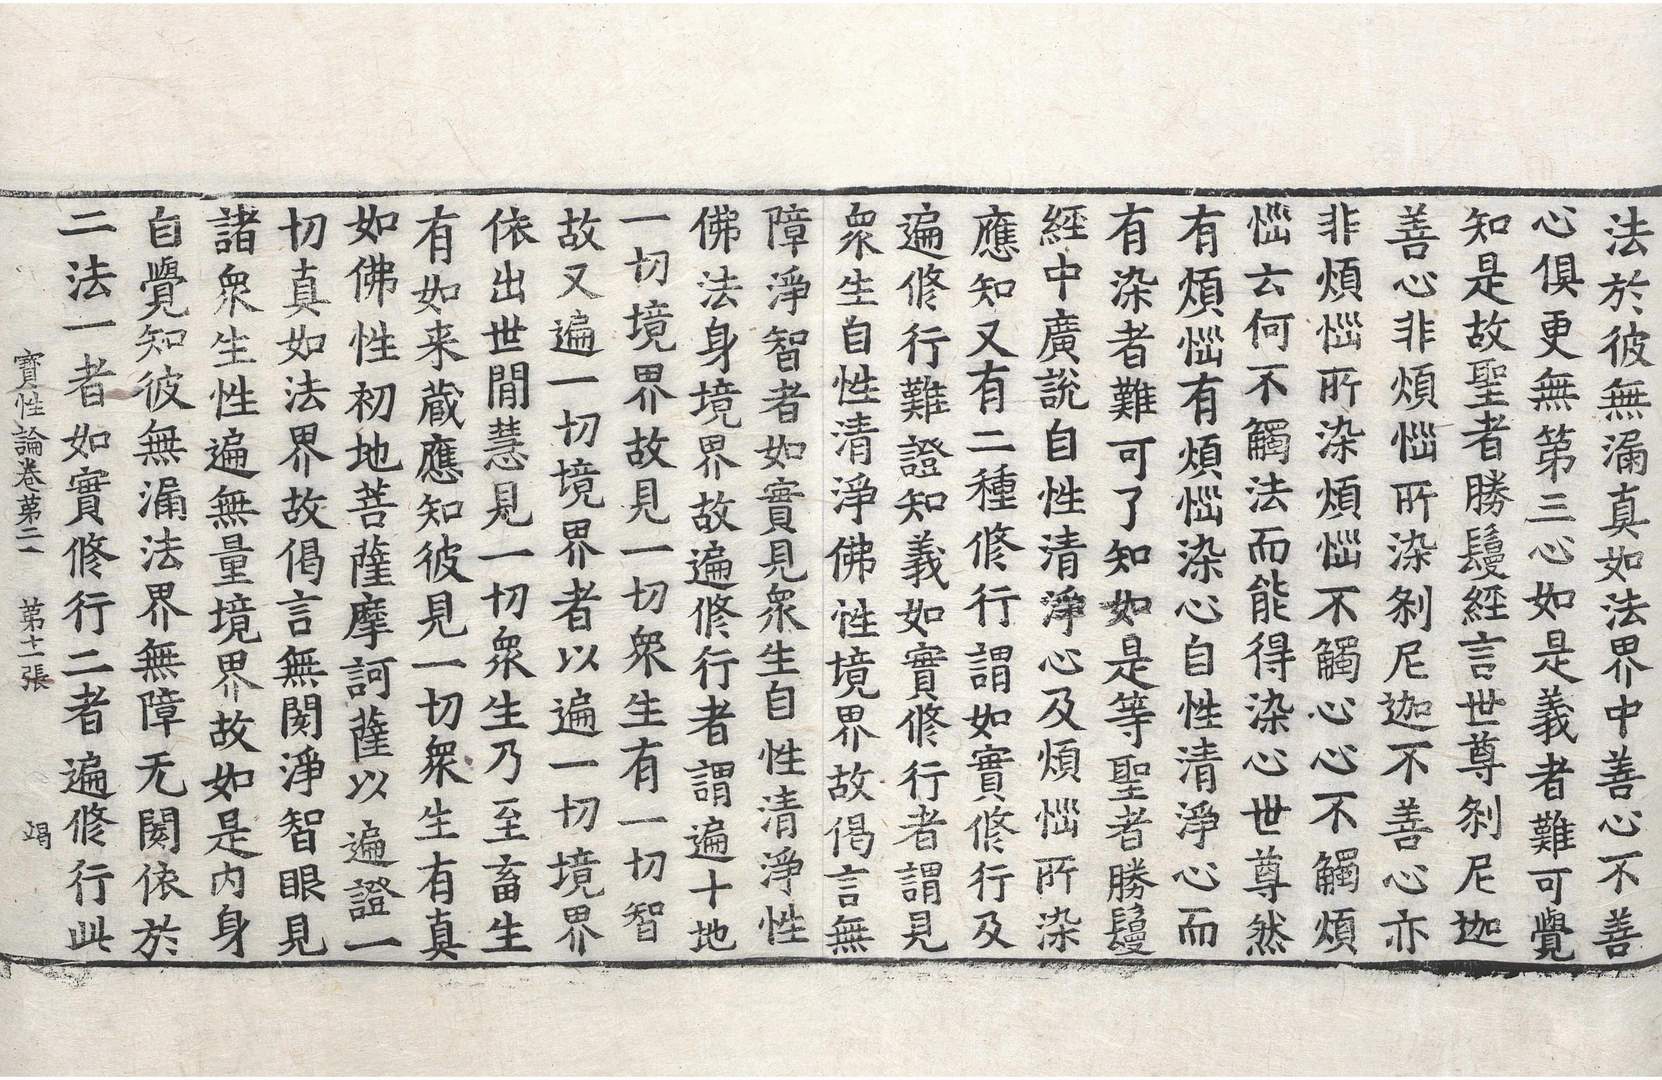 法於彼無漏真如法界中善心不善
心俱更無第三心如是義者難可覺
知是故聖者勝鬘經言世尊刹尼迦
善心非煩惱所染刹尼迦不善心亦
非煩惱所染煩惱不觸心心不觸煩
惱云何不觸法而能得染心世尊然
有煩惱有煩惱染心自性清淨心而
有染者難可了知如是等聖者勝鬘
經中廣說自性清淨心及煩惱所染
應知又有二種修行謂如實修行及
遍修行難證知義如實修行者謂見
衆生自性清淨佛性境界故偈言無
障淨智者如實見衆生自性清淨性
佛法身境界故遍修行者謂遍十地
一切境界故見一切衆生有一切智
故又遍一切境界者以遍一切境界
依出世間慧見一切衆生乃至畜生
有如来蔵應知彼見一切衆生有真
如佛性初地菩薩摩訶薩以遍證一
切真如法界故偈言無閡淨智眼見
諸衆生性遍無量境界故如是內身
自覺知彼無漏法界無障无閡依於
二法一者如實修行二者遍修行此
寶性論卷苐二 苐十一張 竭